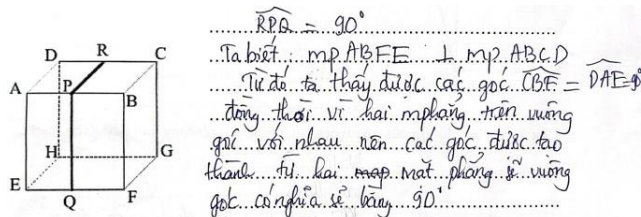 D R C
A P B
H G
E Q F
R͡PQ = 90°
Ta biết : mp ABFE ⊥ mp ABCD
Từ đó ta thấy được các góc C͡BF = D͡AE = 90°
đồng thời vì hai mphẳng trên vuông
góc với nhau nên các góc được tạo
thành từ hai map mặt phẳng sẽ vuông
góc có nghĩa sẽ bằng 90°